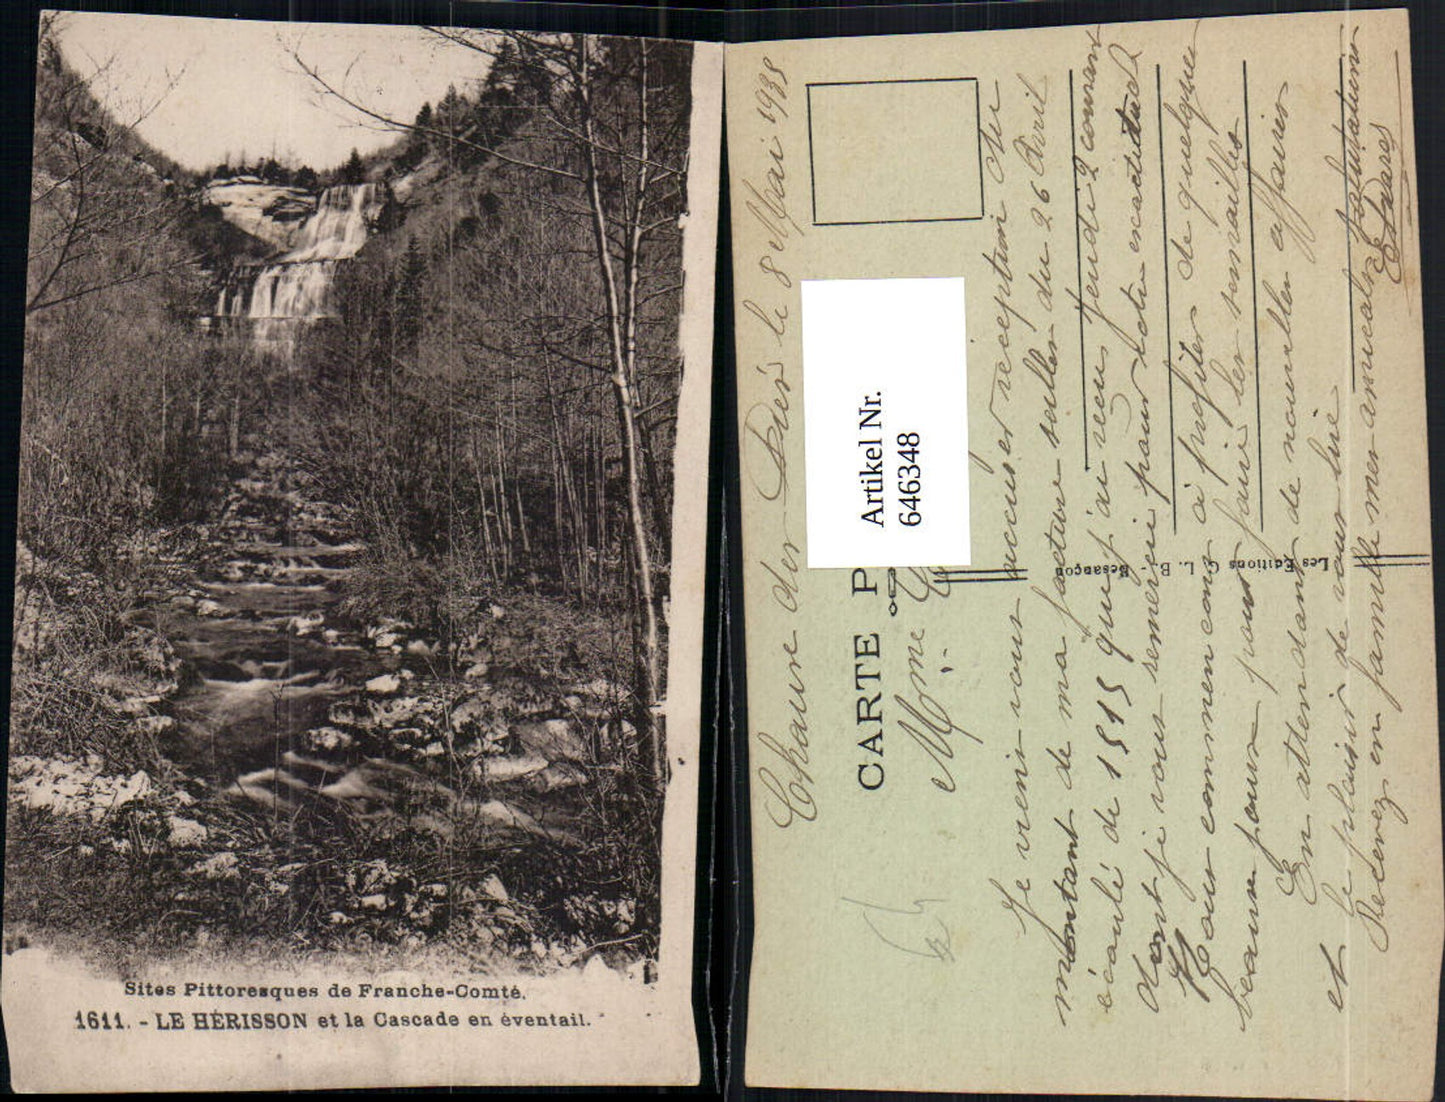 Sites Pittoresques de Franche-Comté.
1611. - LE HÉRISSON et la Cascade en éventail.
Chaux des Prés le 8 Mai 1935
Artikel Nr.
646348
CARTE P
Mme
Les Editions C. L. B., Besançon
Je viens vous accuser réception du
montant de ma facture seillon du 26 Avril
écoulé de 1515 que j'ai reçu Jeudi 2 courant
dont je vous remercie pour votre exactitude
Nous commencons à profiter de quelques
beaux jours pour faire les semailles
En attendant de nouvelles affaires
et le plaisir de vous lire
Recevez en famille mes amicales salutations